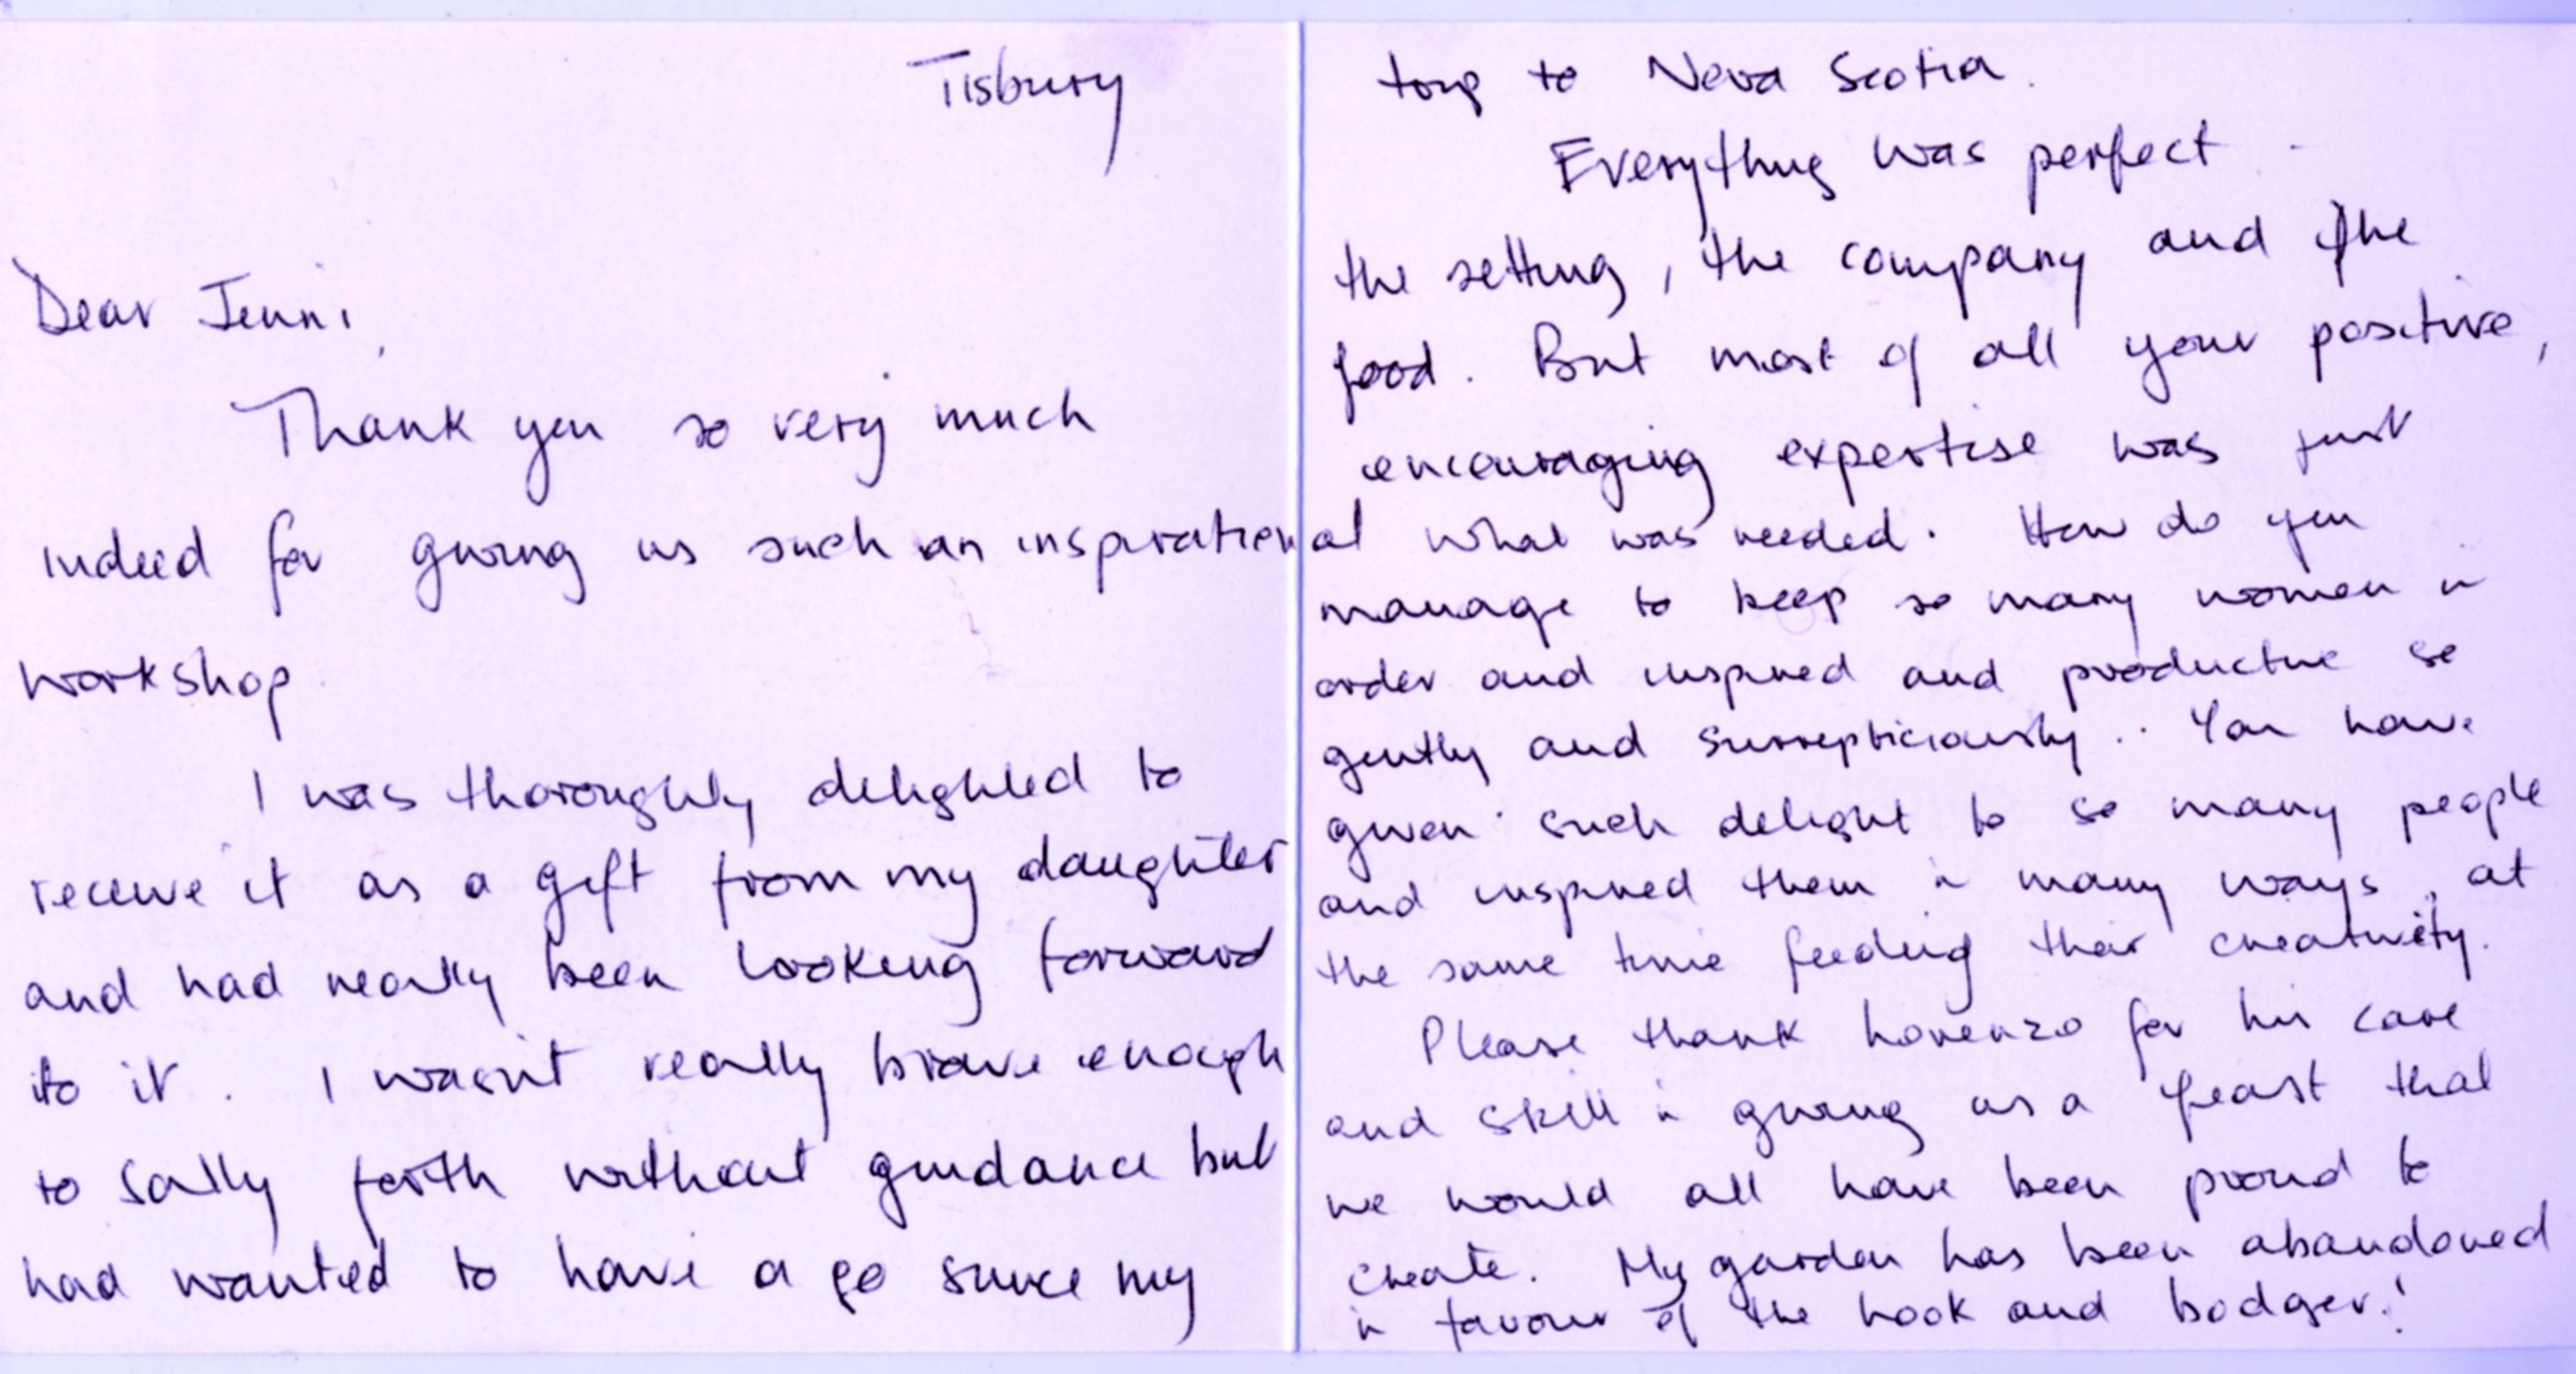 Tisbury
Dear Jenni,
Thank you so very much
indeed for giving us such an inspirational
workshop
I was thoroughly delighted to
receive it as a gift from my daughter
and had really been looking forward
to it. I wasn't really brave enough
to sally forth without guidance but
had wanted to have a go since my
trip to Nova Scotia.
Everything was perfect -
the setting, the company and the
food. But most of all your positive,
encouraging expertise was just
what was needed. How do you
manage to keep so many women in
order and inspired and productive so
gently and surrepticiously.. You have
given such delight to so many people
and inspired them in many ways, at
the same time feeding their creativity.
Please thank Lorenzo for his care
and skill in giving us a feast that
we would all have been proud to
create. My garden has been abandoned
in favour of the hook and bodger!